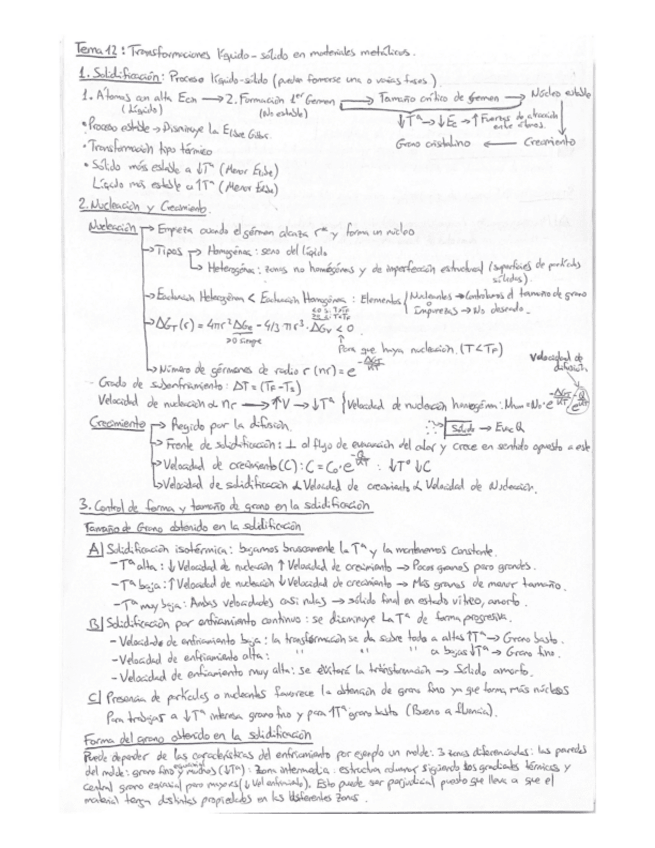 Tema 12: Transformaciones líquido-sólido en materiales metálicos.
1. Solidificación: Proceso líquido-sólido (pueden formarse una o varias fases)
1. Átomos con alta Ecin → 2. Formación 1er Germen → Tamaño crítico de germen → Núcleo estable
(Líquido) (No estable) ↓Tª → ↓Ec → ↑ Fuerzas de atracción entre átomos.
• Proceso estable → Disminuye la E libre Gibbs.
• Transformación tipo térmico Grano cristalino ← Crecimiento
• Sólido más estable a ↓Tª (Menor Elibre)
Líquido más estable a ↑Tª (Menor Elibre)
2. Nucleación y Crecimiento.
Nucleación → Empieza cuando el gérmen alcanza r* y forma un núcleo
→ Tipos → Homogénea: seno del líquido
→ Heterogénea: zonas no homogéneas y de imperfección estructural (superficies de partículas sólidas).
→ Enucleación Heterogénea < Enucleación Homogénea: Elementos Nucleantes → Controlamos el tamaño de grano
Impurezas → No deseado.
→ ΔGT (r) = 4πr² ΔGs - 4/3 πr³ · ΔGv < 0
>0 siempre
Para que haya nucleación. (T<TF)
→ Número de gérmenes de radio r (nr) = e
Velocidad de difusión.
- Grado de subenfriamiento: ΔT = (TF - TS)
Velocidad de nucleación α nr → ↑V → ↓Tª { Velocidad de nucleación homogénea:
Crecimiento → Regido por la difusión. Sólido → Evac Q
→ Frente de solidificación: ⊥ al flujo de evacuación del calor y crece en sentido opuesto a este
→ Velocidad de crecimiento (C): C = C₀·e ↓Tª ↓C
→ Velocidad de solidificación α Velocidad de crecimiento α Velocidad de Nucleación.
3. Control de forma y tamaño de grano en la solidificación
Tamaño de Grano obtenido en la solidificación
A) Solidificación isotérmica: bajamos bruscamente la Tª y la mantenemos constante.
- Tª alta: ↓ Velocidad de nucleación ↑ Velocidad de crecimiento → Pocos granos pero grandes.
- Tª baja: ↑ Velocidad de nucleación ↓ Velocidad de crecimiento → Más granos de menor tamaño.
- Tª muy baja: Ambas velocidades casi nulas → sólido final en estado vítreo, amorfo.
B) Solidificación por enfriamiento continuo: se disminuye la Tª de forma progresiva.
- Velocidad de enfriamiento baja: la transformación se da sobre todo a altas ↑Tª → Grano basto.
- Velocidad de enfriamiento alta: " " " a bajas ↓Tª → Grano fino.
- Velocidad de enfriamiento muy alta: se evitará la transformación → Sólido amorfo.
C) Presencia de partículas o nucleantes favorece la obtención de grano fino ya que forma más núcleos
Para trabajar a ↓Tª interesa grano fino y para ↑Tª grano basto (Bueno a fluencia).
Forma del grano obtenido en la solidificación
Puede depender de las características del enfriamiento por ejemplo un molde: 3 zonas diferenciadas: las paredes
del molde: grano fino y muchos (↓Tª): Zona intermedia: estructura columnar siguiendo los gradientes térmicos y
central grano equiaxial pero mayores (↓Vel enfriamiento). Esto puede ser perjudicial puesto que lleva a que el
material tenga distintas propiedades en las diferentes zonas.